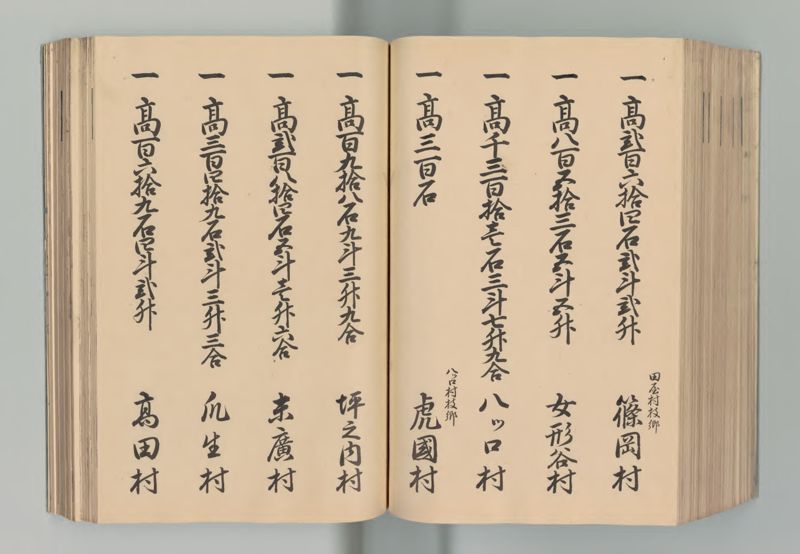 一 高弐百六拾四石弐斗弐升 田屋村枝郷 篠岡村
一 高八百五拾三石五斗五升 女形谷村
一 高千三百拾壱石三斗七升九合 八ツ口村
一 高三百石 八ツ口村枝郷 虎國村
一 高百九拾八石九斗三升九合 坪之内村
一 高弐百八拾四石五斗壱升六合 末廣村
一 高三百四拾九石弐斗三升三合 爪生村
一 高百六拾九石四斗弐升 高田村